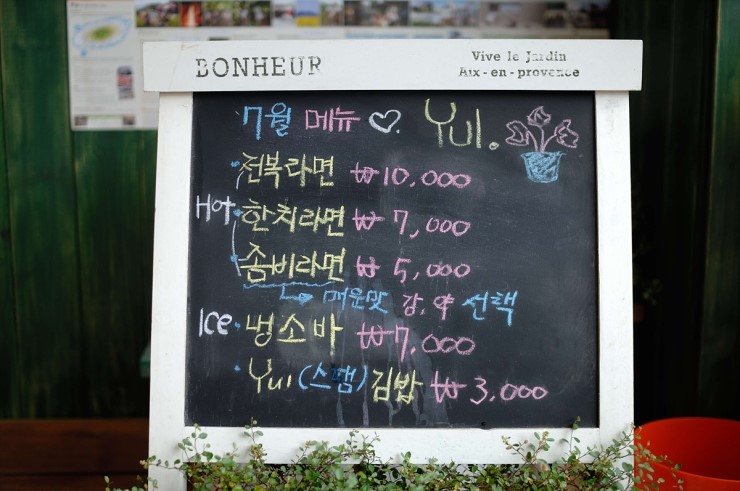 BONHEUR
Vive le Jardin
Aix-en-provence
7월 메뉴 ♡. Yul.
·전복라면 ₩10,000
Hot ·한치라면 ₩7,000
·좀비라면 ₩5,000
매운맛 강,약 선택
Ice ·냉소바 ₩7,000
·Yul (스팸)김밥 ₩3,000